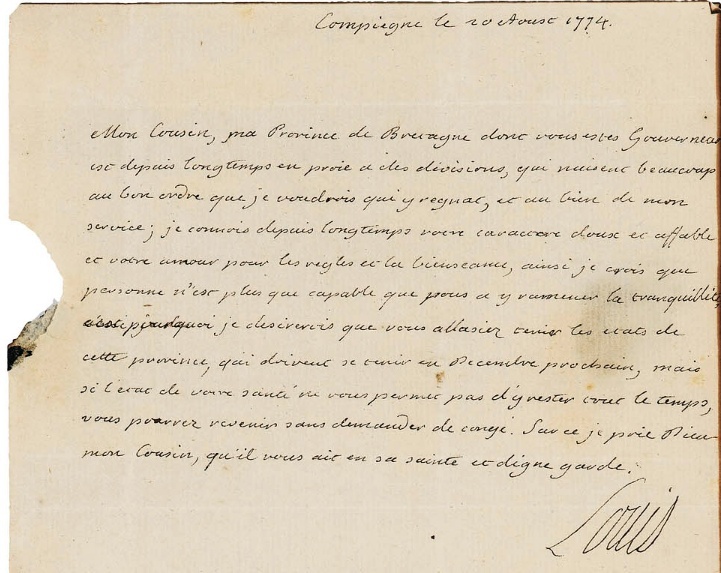 Compiegne le 20 Aoust 1774.
Mon Cousin, ma Province de Bretagne dont vous estes Gouverneur
est depuis longtemps en proie a des divisions, qui nuisent beaucoup
au bon ordre que je voudrois qui y regnat, et au bien de mon
service; je connois depuis longtemps votre caractere doux et affable
et votre amour pour les regles et la bienseance, ainsi je crois que
personne n'est plus que capable que vous a y ramener la tranquillité,
c'est pourquoi je desirerois que vous allasiez tenir les etats de
cette province, qui doivent se tenir en Decembre prochain, mais
si l'etat de votre santé ne vous permet pas d'y rester tout le temps,
vous pourrez revenir sans demander de congé. Sur ce je prie Dieu
mon Cousin, qu'il vous ait en sa sainte et digne garde.
Louis